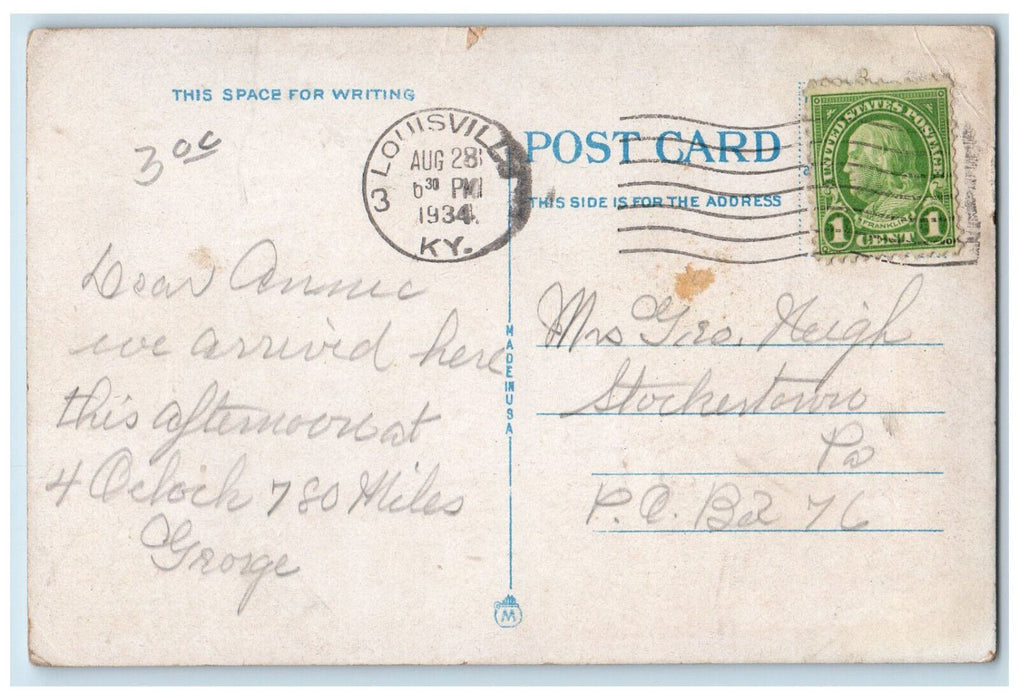 THIS SPACE FOR WRITING
3 00
3 LOUISVILLE
AUG 28
6 30 PM
1934
KY.
Dear Annie
we arrived here
this afternoon at
4 Oclock 780 Miles
George
MADE IN USA
M
POST CARD
THIS SIDE IS FOR THE ADDRESS
UNITED STATES POSTAGE
FRANKLIN
1 CENT 1
Mrs Geo. Heigh
Stockertown
Pa
P.O. Bx 76